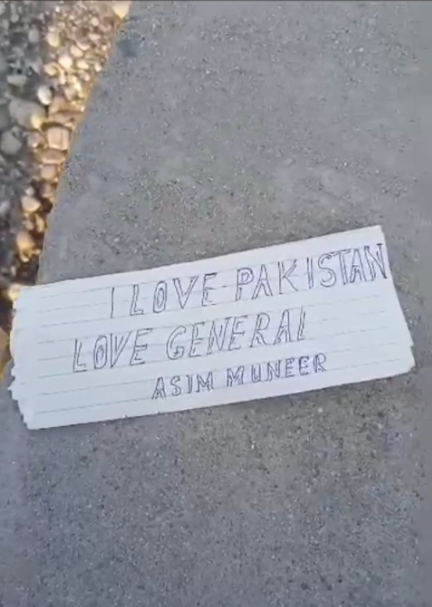 I LOVE PAKISTAN
LOVE GENERAL
ASIM MUNEER